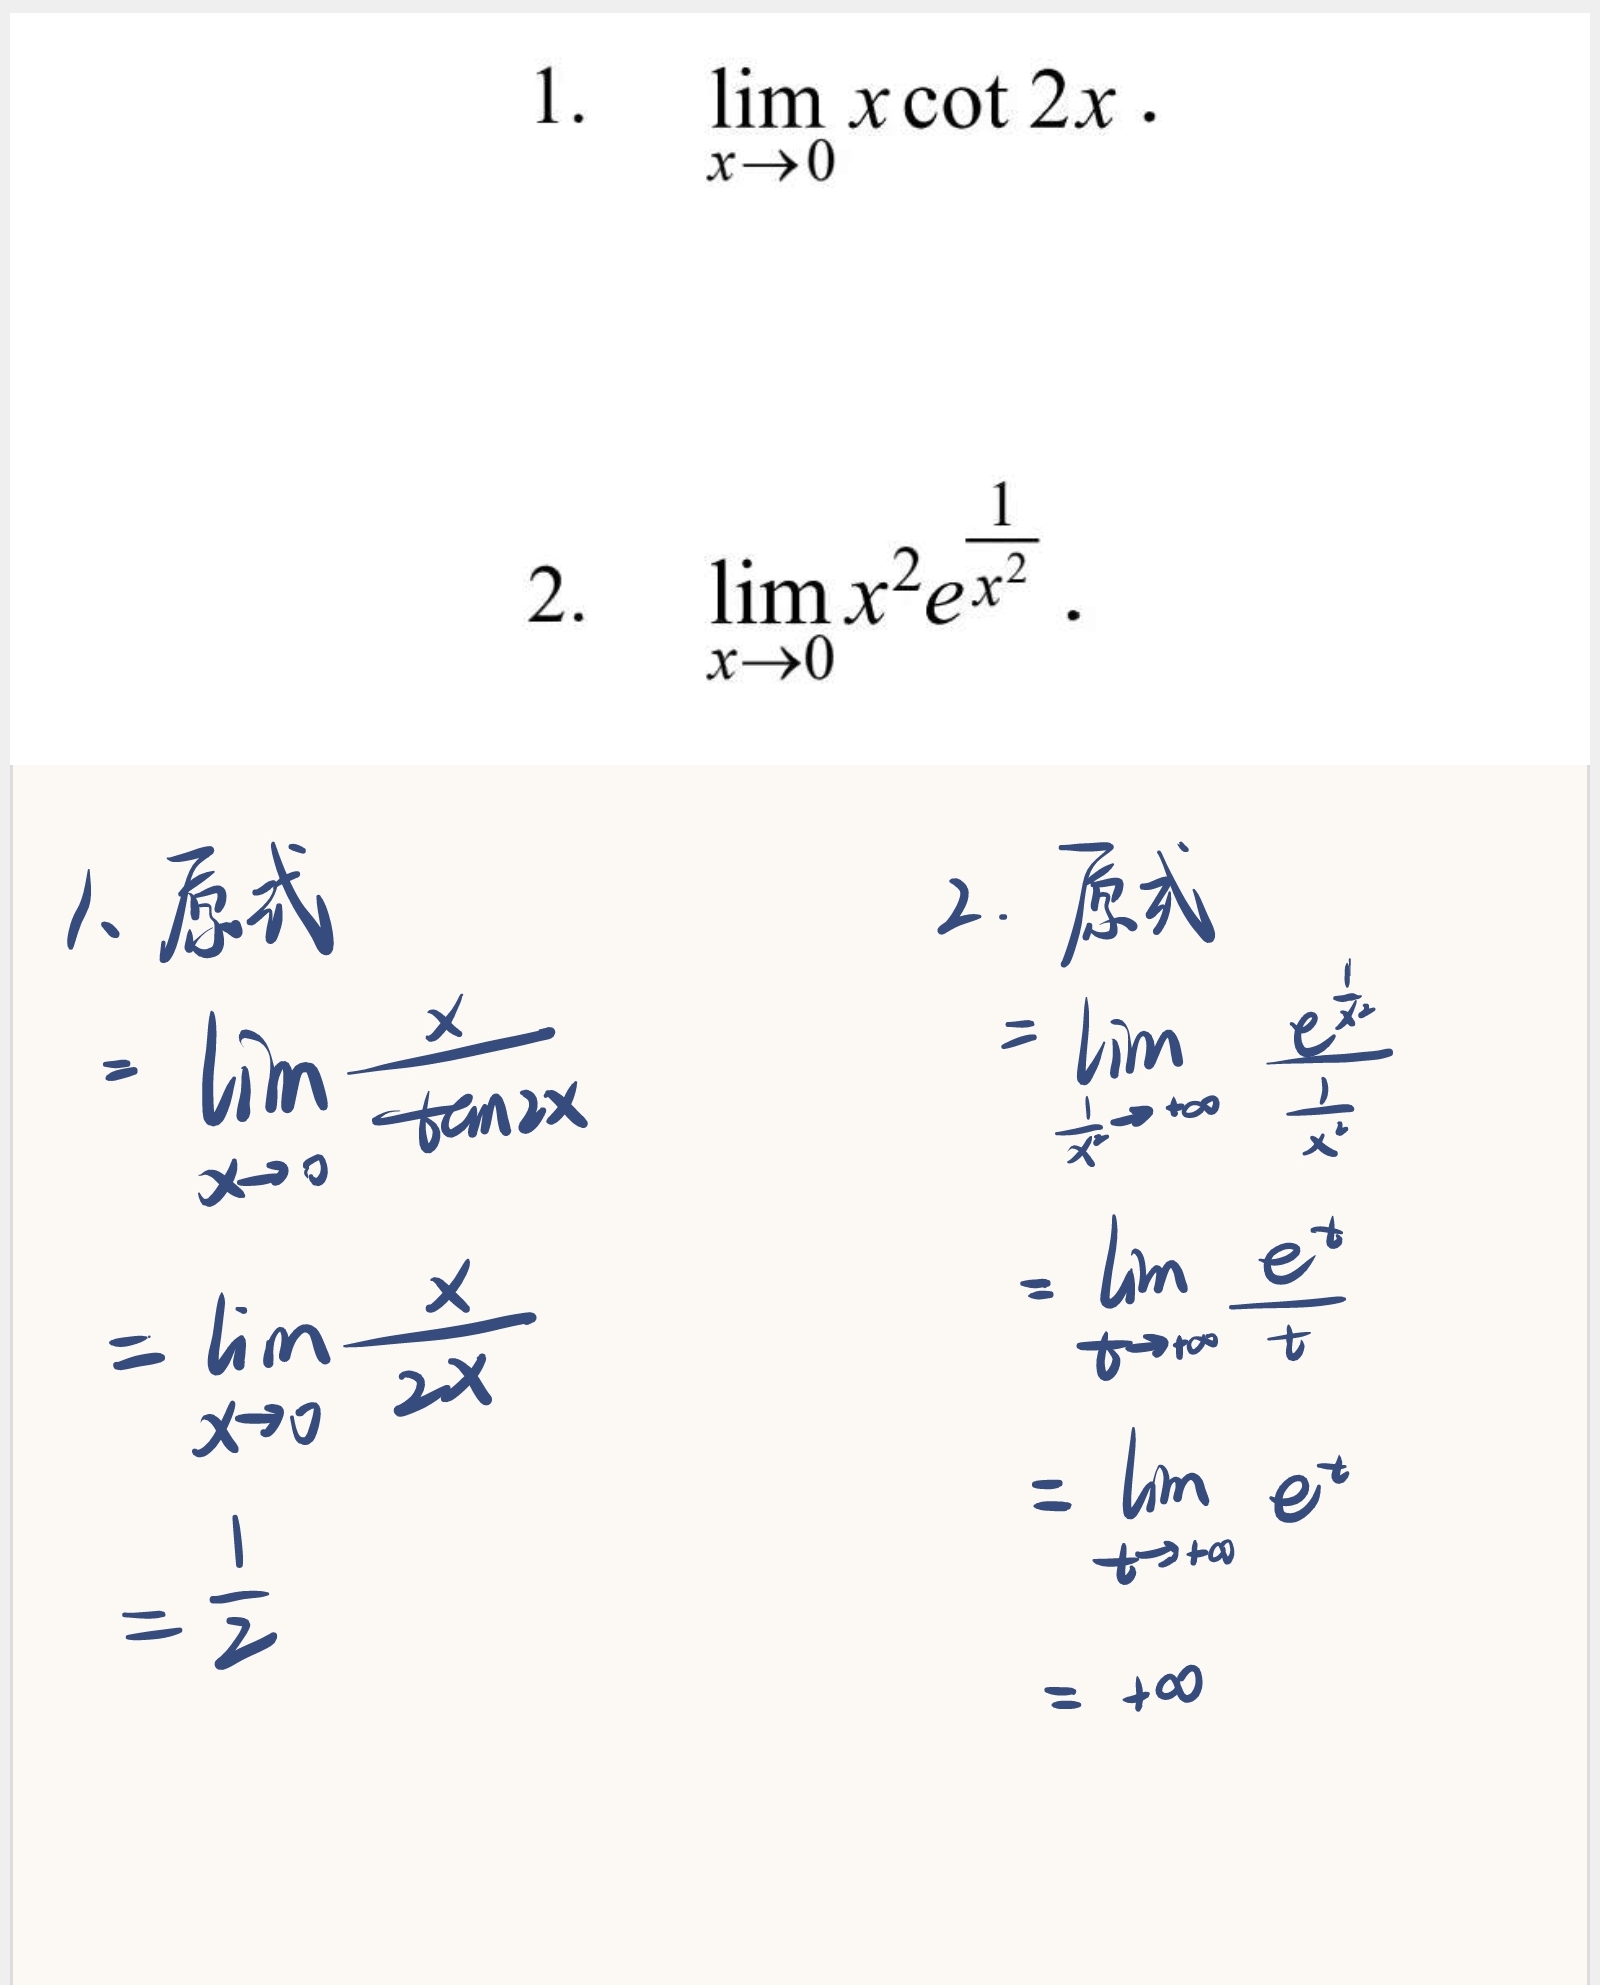 1. lim x→0 x cot 2x .
2. lim x→0 x² e^(1/x²) .
1、原式
= lim x→0 x/tan2x
= lim x→0 x/2x
= 1/2
2. 原式
= lim 1/x²→+∞ e^(1/x²)/(1/x²)
= lim t→+∞ e^t/t
= lim t→+∞ e^t
= +∞